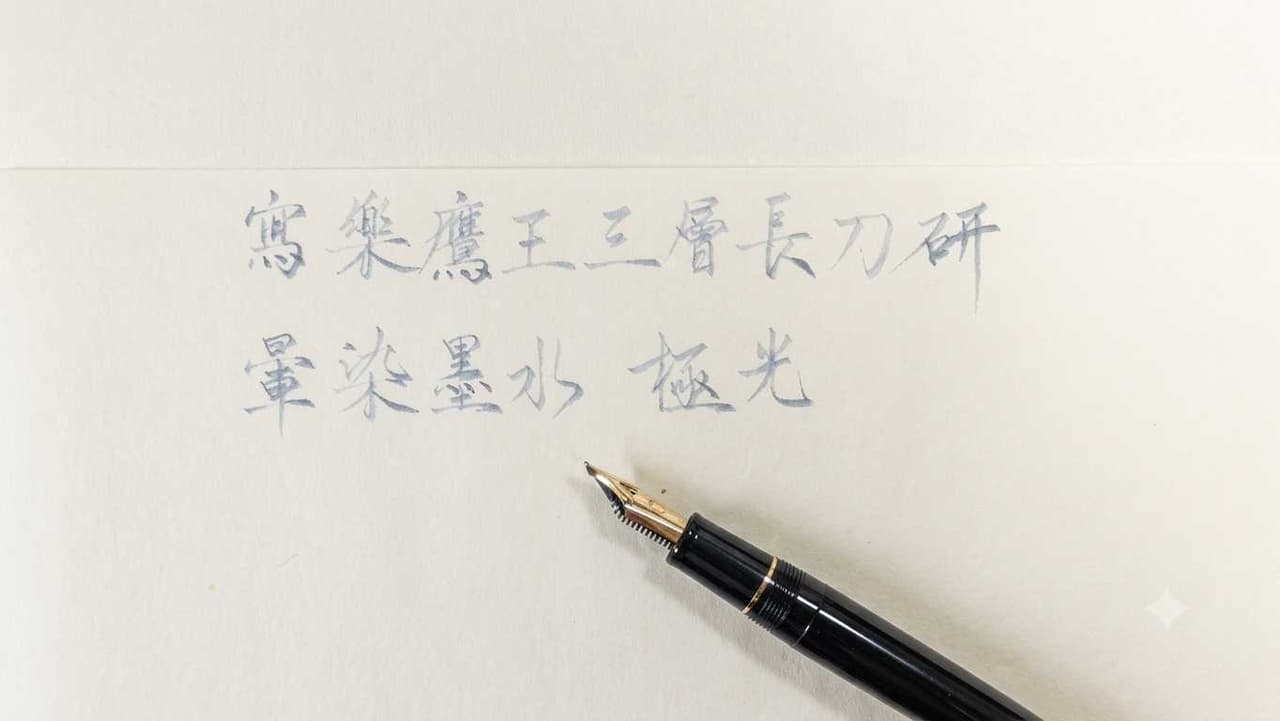 寫樂鷹王三層長刀研
暈染墨水 極光